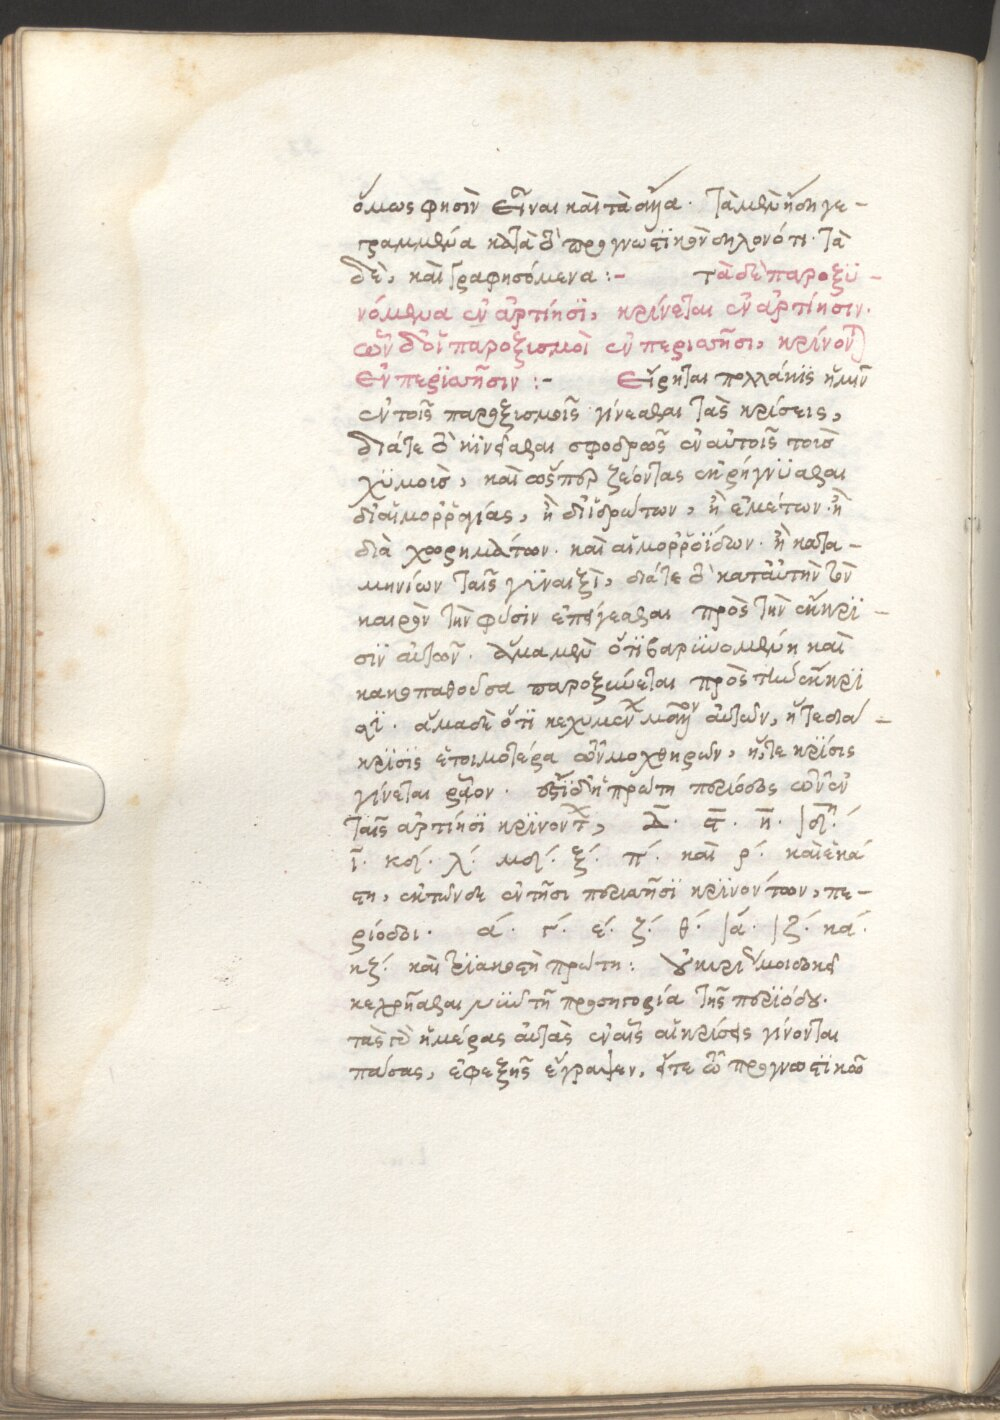 ὅμως φησὶν εἶναι καὶ τὰ σημεῖα. τὰ μὲν ἤδη γε-
γραμμένα κατὰ τὸ προγνωστικὸν δηλονότι. τὰ
δὲ, καὶ γραφησόμενα :- τὰ δὲ παροξυ-
νόμενα ἐν ἀρτίησι, κρίνεται ἐν ἀρτίησιν.
ὧν δὲ οἱ παροξισμοὶ ἐν περισσῇσι, κρίνονται
ἐν περισσῇσιν :- Εἴρηται πολλάκις ἡμῖν
ἐν τοῖς παροξισμοῖς γίνεσθαι τὰς κρίσεις,
διά τε τὸ κινεῖσθαι σφοδρῶς ἐν αὐτοῖς τοὺς
χυμοὺς, καὶ ὥσπερ ζέοντας ἐκρήγνυσθαι
δι' αἱμοῤῥαγίας, ἢ δι' ἱδρώτων, ἢ ἐμέτων. ἢ
διὰ χωρημάτων. καὶ αἱμοῤῥοΐδων. ἢ κατα-
μηνίων ταῖς γυναιξὶ, διά τε τὸ κατ' αὐτὴν τὸν
καιρὸν τὴν φύσιν ἐπείγεσθαι πρὸς τὴν ἔκκρι-
σιν αὐτῶν. ἅμα μὲν ὅτι βαρυνομένη καὶ
κακοπαθοῦσα παροξύνεται πρὸς τὴν ἔκκρι
σι. ἅμα δὲ ὅτι κεχυμένων αὐτῶν, ἥ τε διά-
κρισις ἑτοιμοτέρα τῶν μοχθηρῶν, ἥ τε κρίσις
γίνεται ῥᾷον. ἔστι δὴ πρώτη περίοδος τῶν ἐν
ταῖς ἀρτίησι κρινόντων, δ. ϛ. η. ι. ιδ.
κ. κδ. λ. μδ. ξ. π. καὶ ρ. καὶ ἑκα
στη, ἐκ τῶν δὲ ἐν τῇσι περισσῇσι κρινόντων, πε-
ρίοδοι. α. γ. ε. ζ. θ. ια. ιζ. κα.
κζ. καὶ τριακοστὴ πρώτη : δοκεῖ
κεχρῆσθαι νῦν τῇ προσηγορίᾳ τῆς περιόδου.
τὰς ἡμέρας αὐτὰς ἐν αἷς αἱ κρίσεις γίνονται
πάσας, ἐφεξῆς ἔγραψεν. τῷ προγνωστικῷ